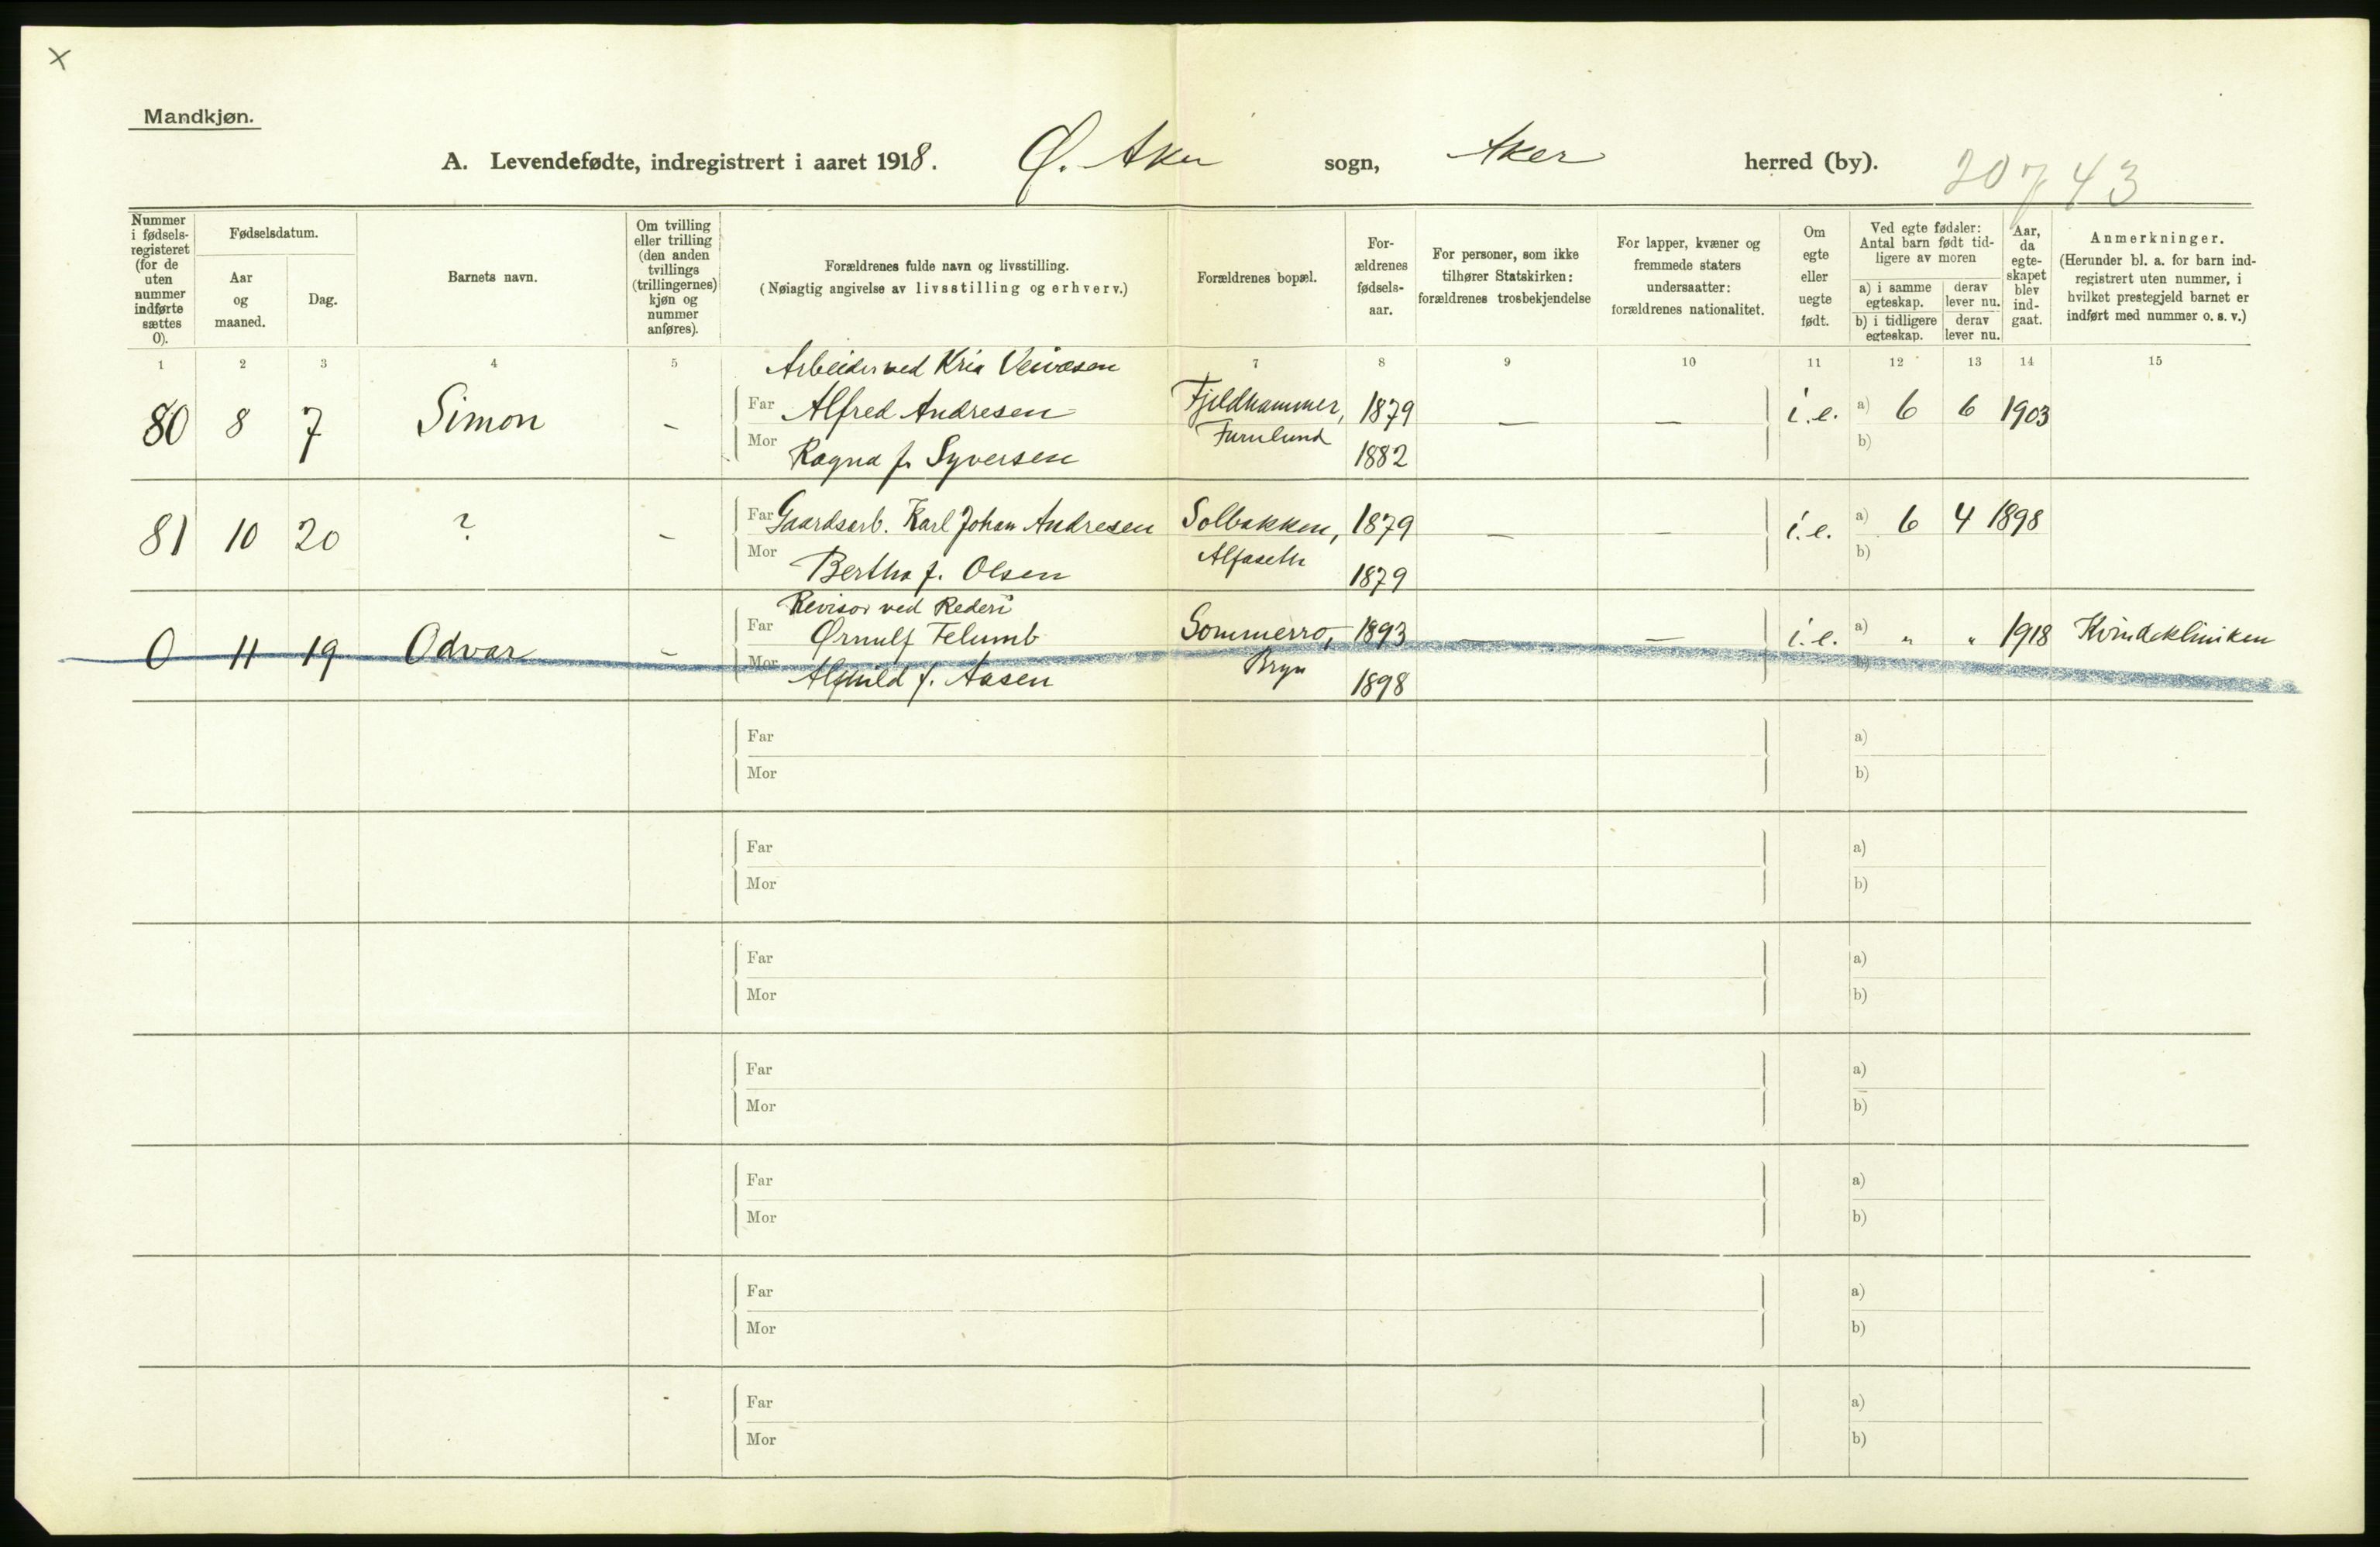 ×
Mandkjøn.
A. Levendefødte, indregistrert i aaret 1918. Ø. Aker sogn, Aker herred (by). 20743
Nummer i fødselsregisteret (for de uten nummer indførte sættes 0).
Fødselsdatum.
Aar og maaned.
Dag.
Barnets navn.
Om tvilling eller trilling (den anden tvillings (trillingernes) kjøn og nummer anføres).
Forældrenes fulde navn og livsstilling.
(Nøiagtig angivelse av livsstilling og erhverv.)
Forældrenes bopæl.
Forældrenes fødselsaar.
For personer, som ikke tilhører Statskirken: forældrenes trosbekjendelse
For lapper, kvæner og fremmede staters undersaatter: forældrenes nationalitet.
Om egte eller uegte født.
Ved egte fødsler: Antal barn født tidligere av moren
a) i samme egteskap.
derav lever nu.
b) i tidligere egteskap.
derav lever nu.
Aar, da egteskapet blev indgaat.
Anmerkninger.
(Herunder bl. a. for barn indregistrert uten nummer, i hvilket prestegjeld barnet er indført med nummer o. s. v.)
1 2 3 4 5 7 8 9 10 11 12 13 14 15
Arbeider ved Kria Veivæsen
80 8 7 Simon - Far Alfred Andresen Fjeldhammer, 1879 — — i.e. a) 6 6 1903
Mor Ragna f. Syversen Furulund 1882 b)
81 10 20 ? - Far Gaardsarb. Karl Johan Andresen Solbakken, 1879 — — i.e. a) 6 4 1898
Mor Bertha f. Olsen Alfaseth 1879 b)
Revisor ved Rederi
0 11 19 Odvar - Far Ørnulf Felumb Sommerro, 1893 — — i.e. a) " " 1918 Kvindekliniken
Mor Alfhild f. Aasen Bryn 1898 b)
Far a)
Mor b)
Far a)
Mor b)
Far a)
Mor b)
Far a)
Mor b)
Far a)
Mor b)
Far a)
Mor b)
- Far a)
Mor b)